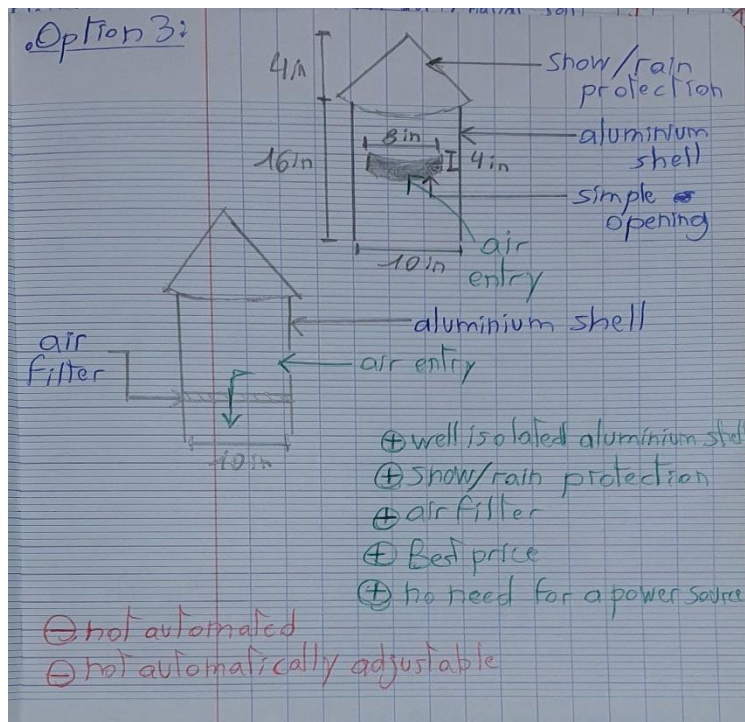 .Option 3:
4in
snow/rain
protection
16in
8in
4in
aluminium
shell
simple
opening
10in
air
entry
aluminium shell
air
filter
air entry
10in
⊕ well isolated aluminium shell
⊕ snow/rain protection
⊕ air filter
⊕ Best price
⊕ no need for a power source
⊖ not automated
⊖ not automatically adjustable